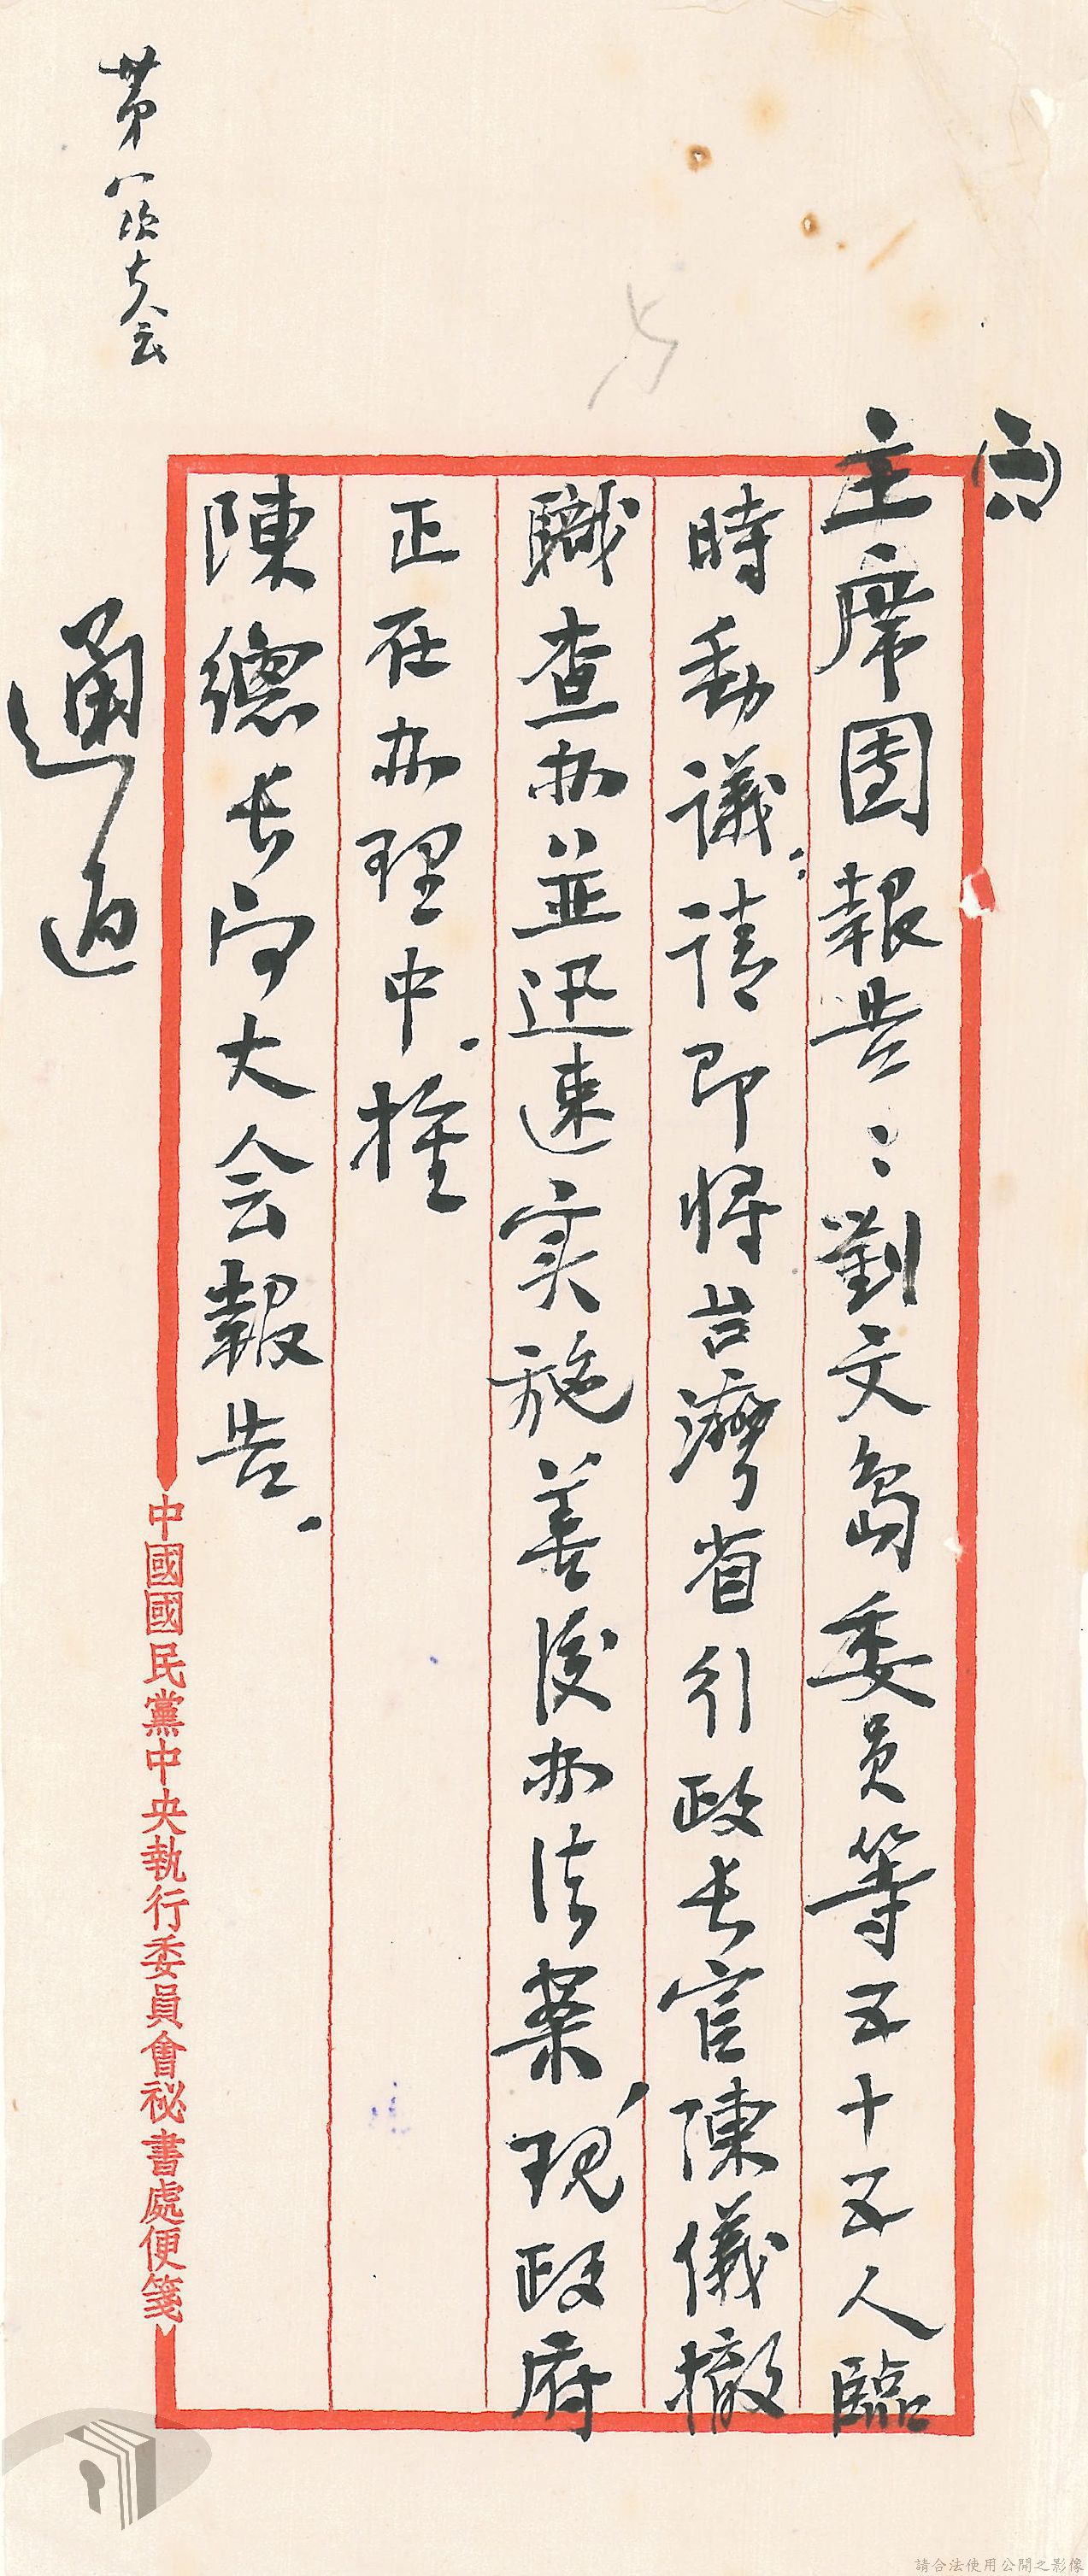 ㈥
主席團報告：劉文島委員等五十五人臨
時動議：請即將台灣省行政長官陳儀撤
職查办並迅速实施善後办法案，現政府
正在办理中．推
陳總長向大会報告．
通過
第八次大会
中國國民黨中央執行委員會祕書處便箋
請合法使用公開之影像